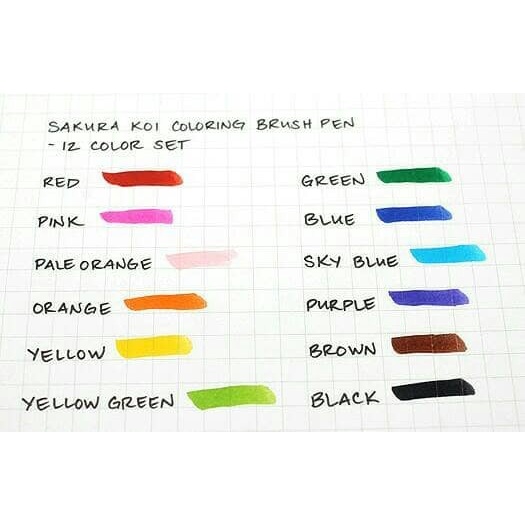 SAKURA KOI COLORING BRUSH PEN
- 12 COLOR SET
RED
PINK
PALE ORANGE
ORANGE
YELLOW
YELLOW GREEN
GREEN
BLUE
SKY BLUE
PURPLE
BROWN
BLACK